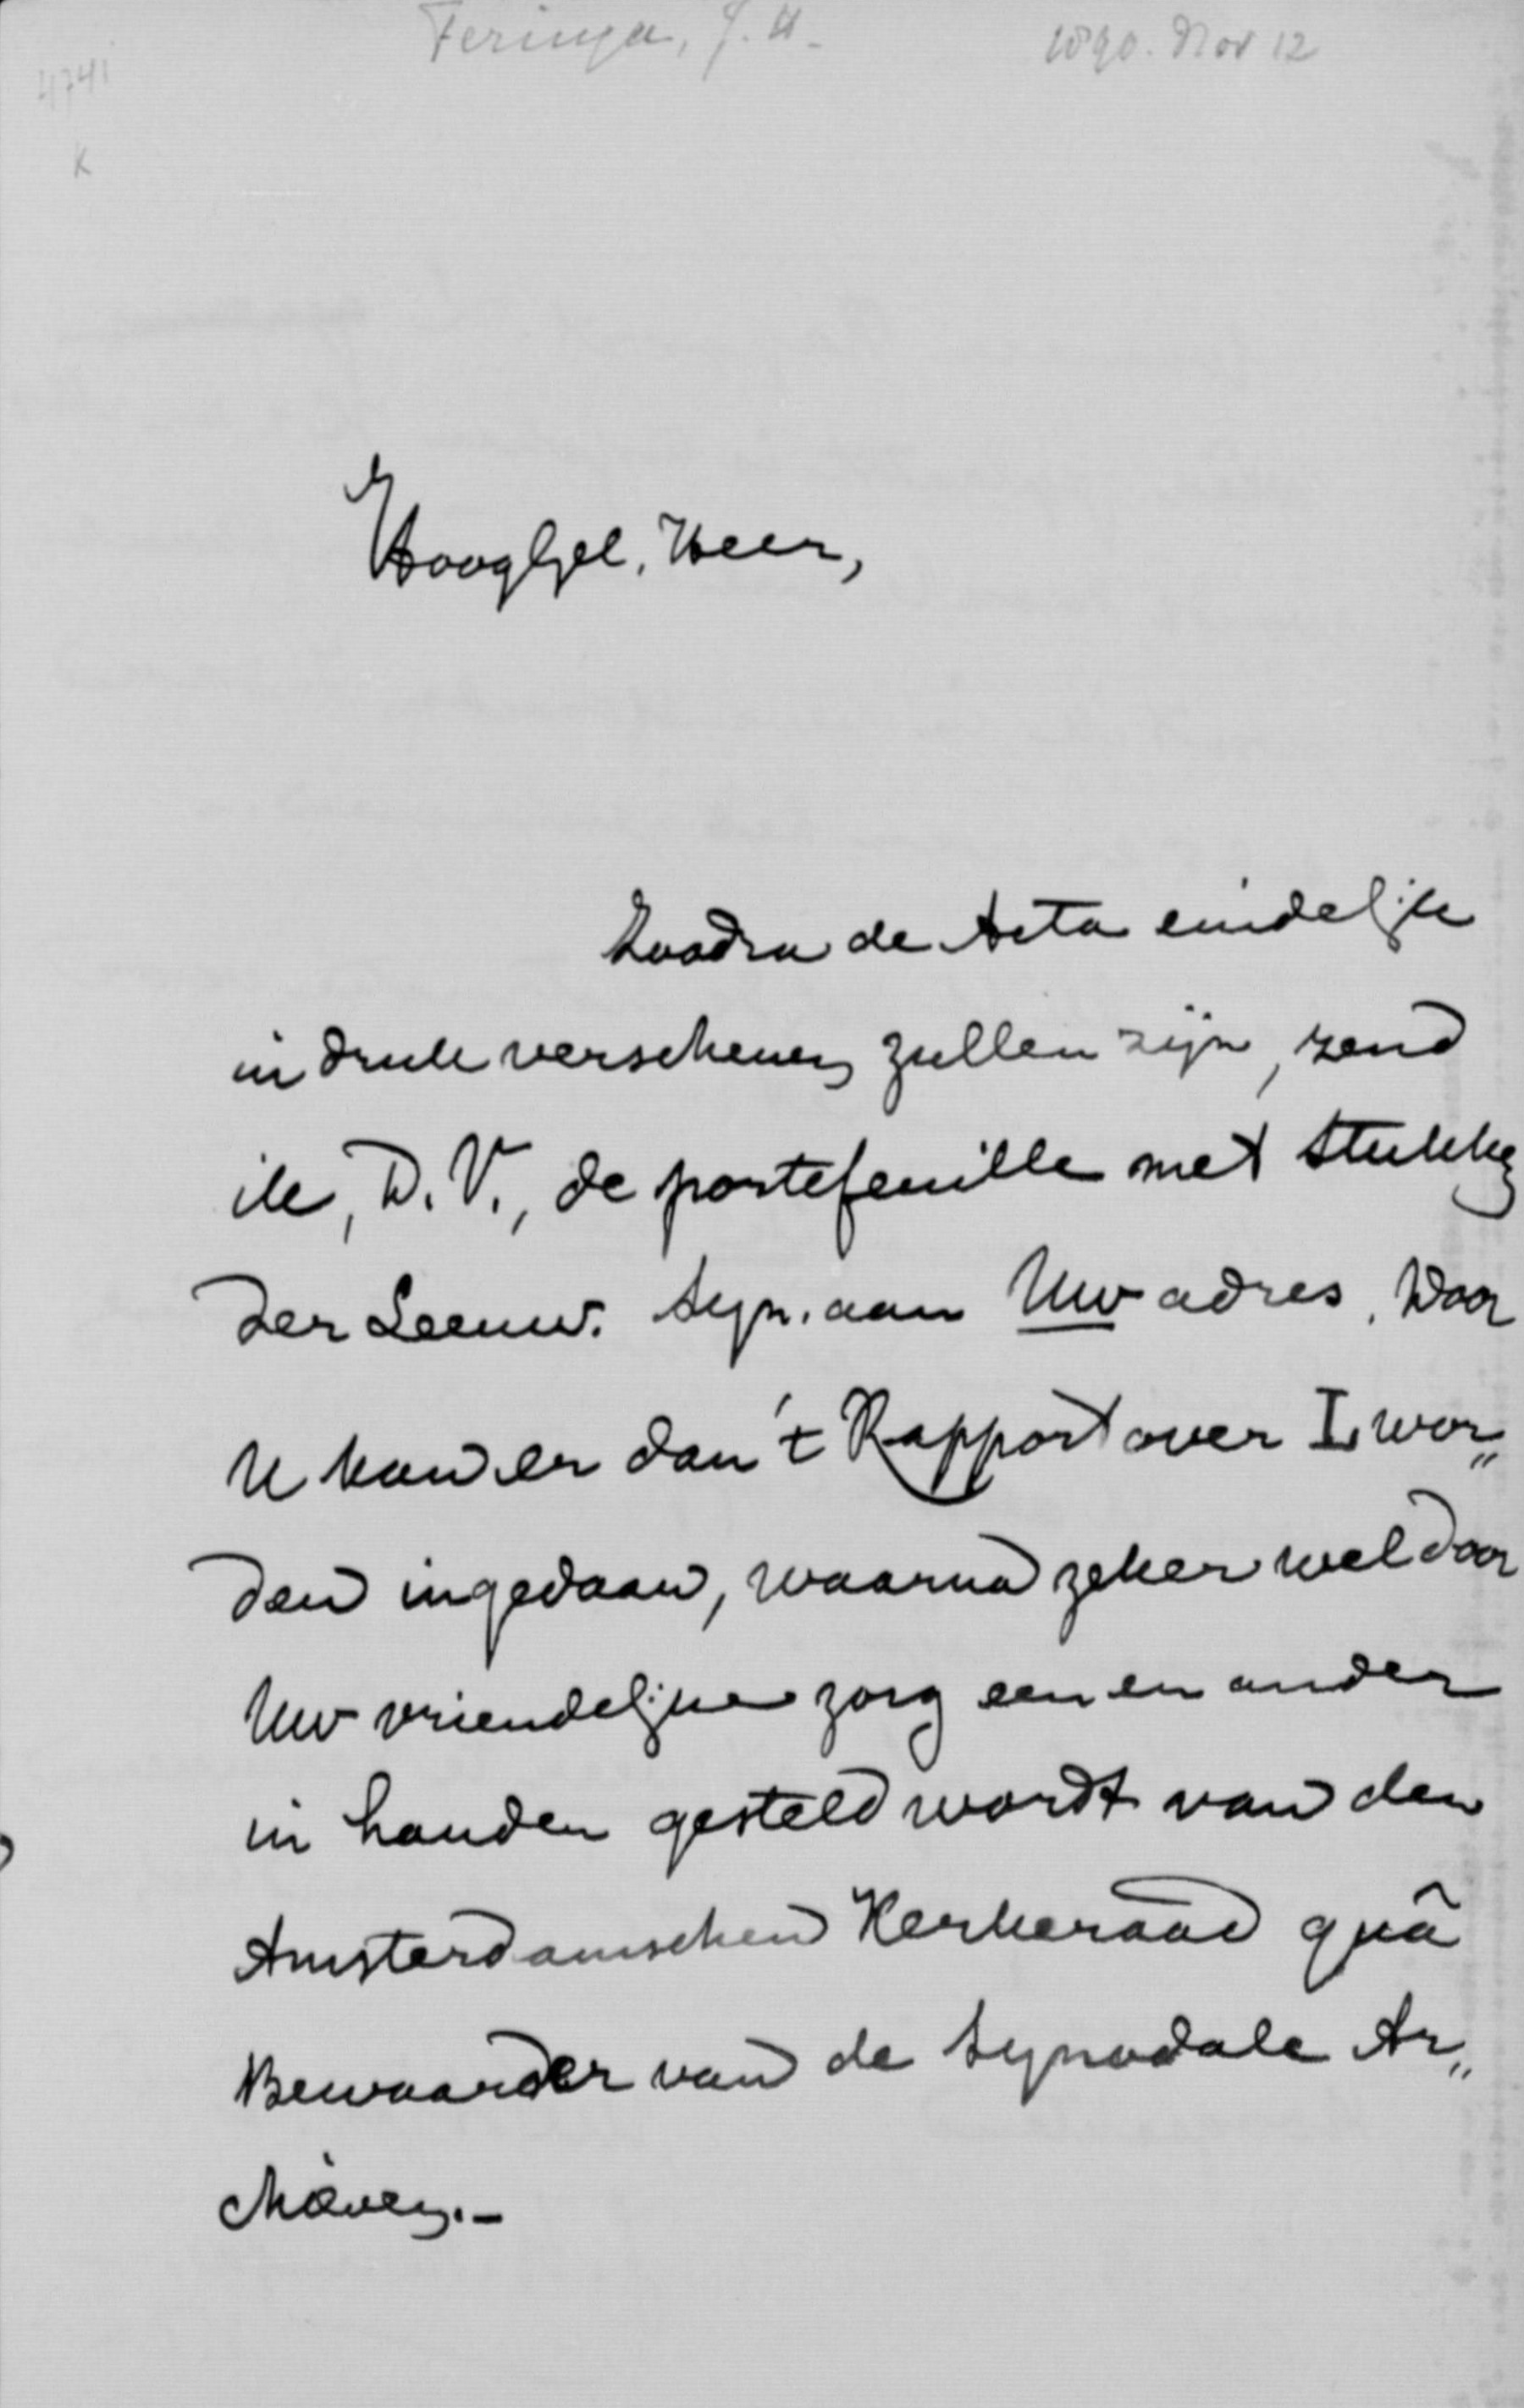 Feringa, J. H. 1890. Nov 12
4741
K
HoogGel. Heer,
Zoodra de Acta eindelijk
in druk verschenen zullen zijn, zend
ik, D.V., de portefeuille met stukken
der Leeuw. Syn. aan Uw adres. Door
U kan er dan 't Rapport over I wor„
den ingedaan, waarna zeker wel door
Uw vriendelijke zorg een en ander
in handen gesteld wordt van den
Amsterdamschen Kerkeraad quâ
Bewaarder van de Synodale Ar„
chieven.-